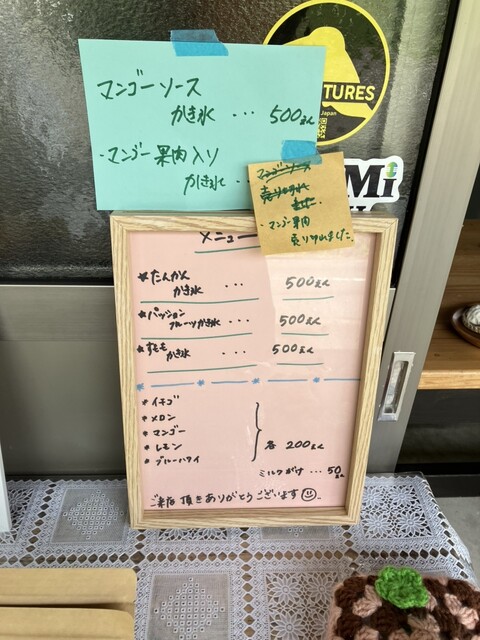 マンゴーソース
かき氷 ... 500えん
・マンゴー果肉入り
かき氷 ..
TURES
Japan
Mi
マンゴーソース
売り切れ
ました
・マンゴー果肉
売り切れました。
メニュー
★たんかん
かき氷 ... 500えん
★パッション
フルーツかき氷 ... 500えん
★すもも
かき氷 ... 500えん
* イチゴ
* メロン
* マンゴー
* レモン
* ブルーハワイ
各 200えん
ミルクがけ ... 50えん
ご来店頂きありがとうございます